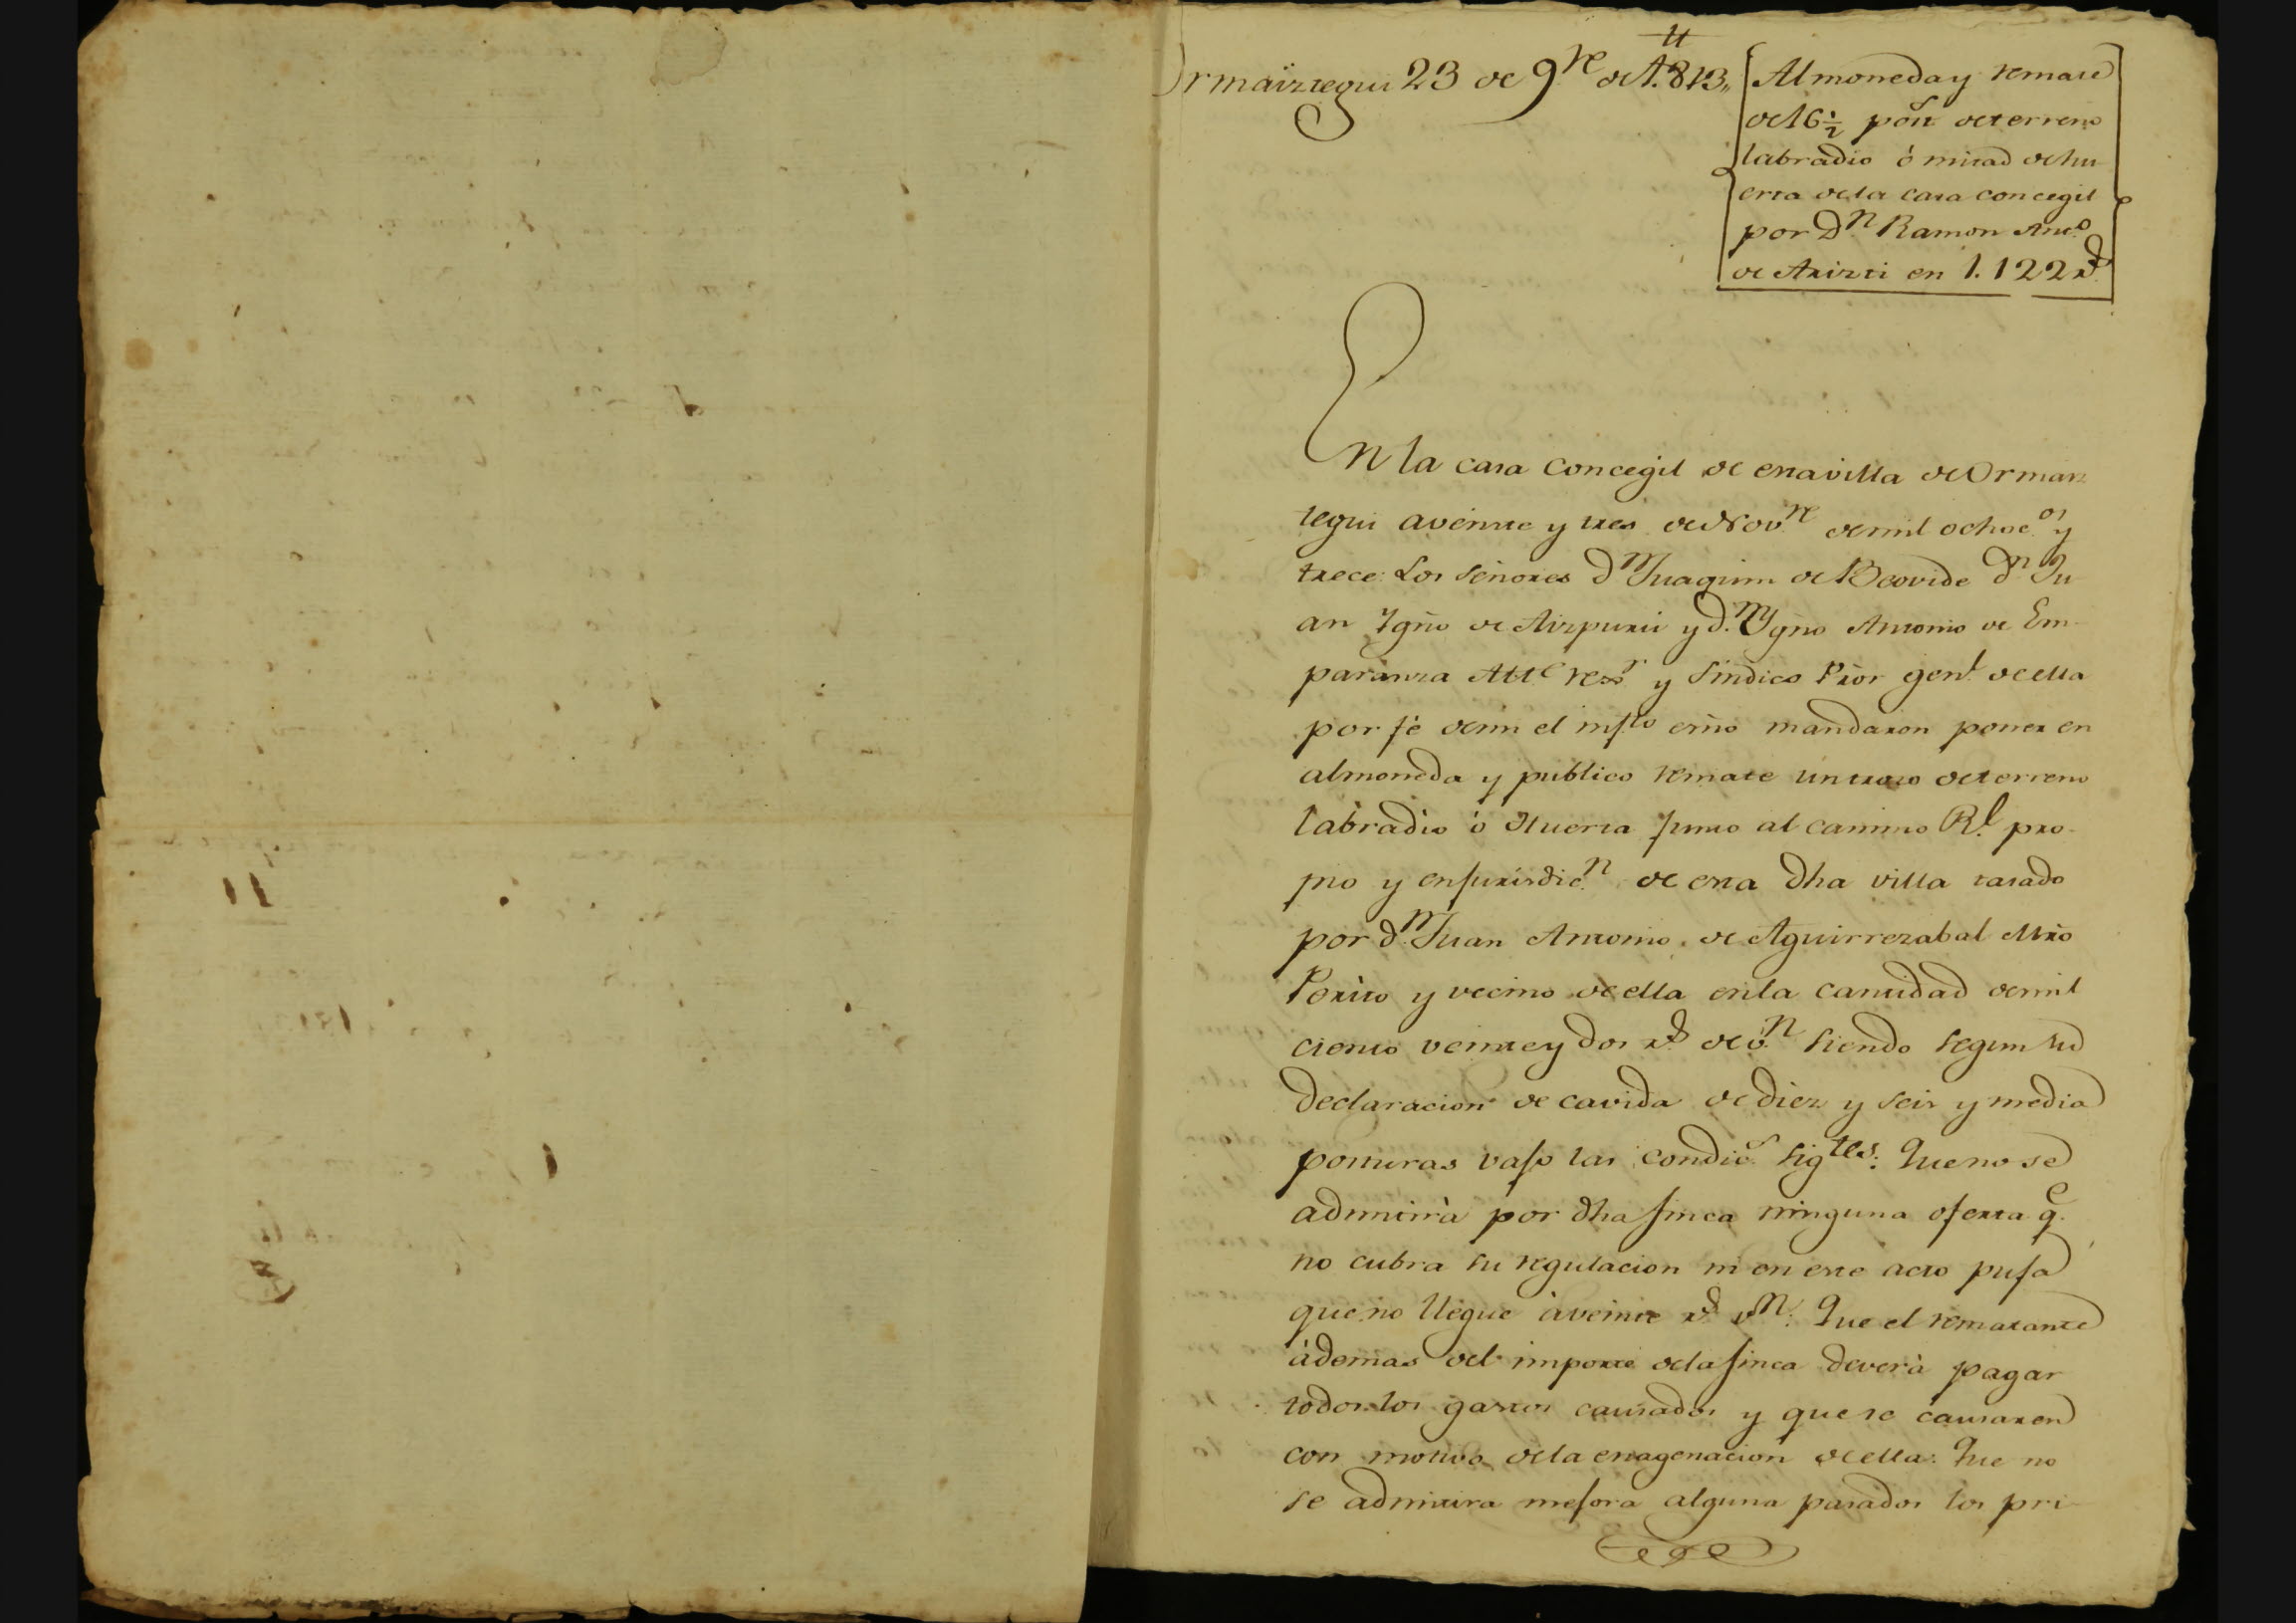 11
Ormaiztegui 23 de 9.re de 1.813,,
Almoneda y remate
de 16 1/2 pos.s de terreno
labradio ó mitad de hu-
erta de la casa concegil
por D.n Ramon Ant.o
de Arizti en 1.122 r.s
En la casa concegil de esta villa de Ormaiz
tegui a veinte y tres de Nov.re de mil ochoc.os y
trece: Los Señores d.n Juaquin de Beovide d.n Ju
an Ygño de Aizpuru y d.n Ygño Antonio de Em-
paranza Alc.e rex.r y Sindico Pror gen.l de ella
por fé de mi el infto esño mandaron poner en
almoneda y publico remate un trozo de terreno
labradio ó Huerta junto al camino R.l pro-
pio y en jurisdic.n de esta dha villa tasado
por d.n Juan Antonio de Aguirrezabal Mro
Perito y vecino de ella en la cantidad de mil
ciento veinte y dos r.s de v.n siendo segun su
declaracion de cavida de diez y seis y media
posturas vajo las condic.s sig.tes: Que no se
admitirà por dha finca ninguna oferta q.e
no cubra su regulacion ni en este acto puja
que no llegue à veinte r.s v.n: Que el rematante
àdemas del importe de la finca deverà pagar
todos los gastos causados y que se causaren
con motivo de la enagenacion de ella: Que no
se admitira mejora alguna pasados los pri-